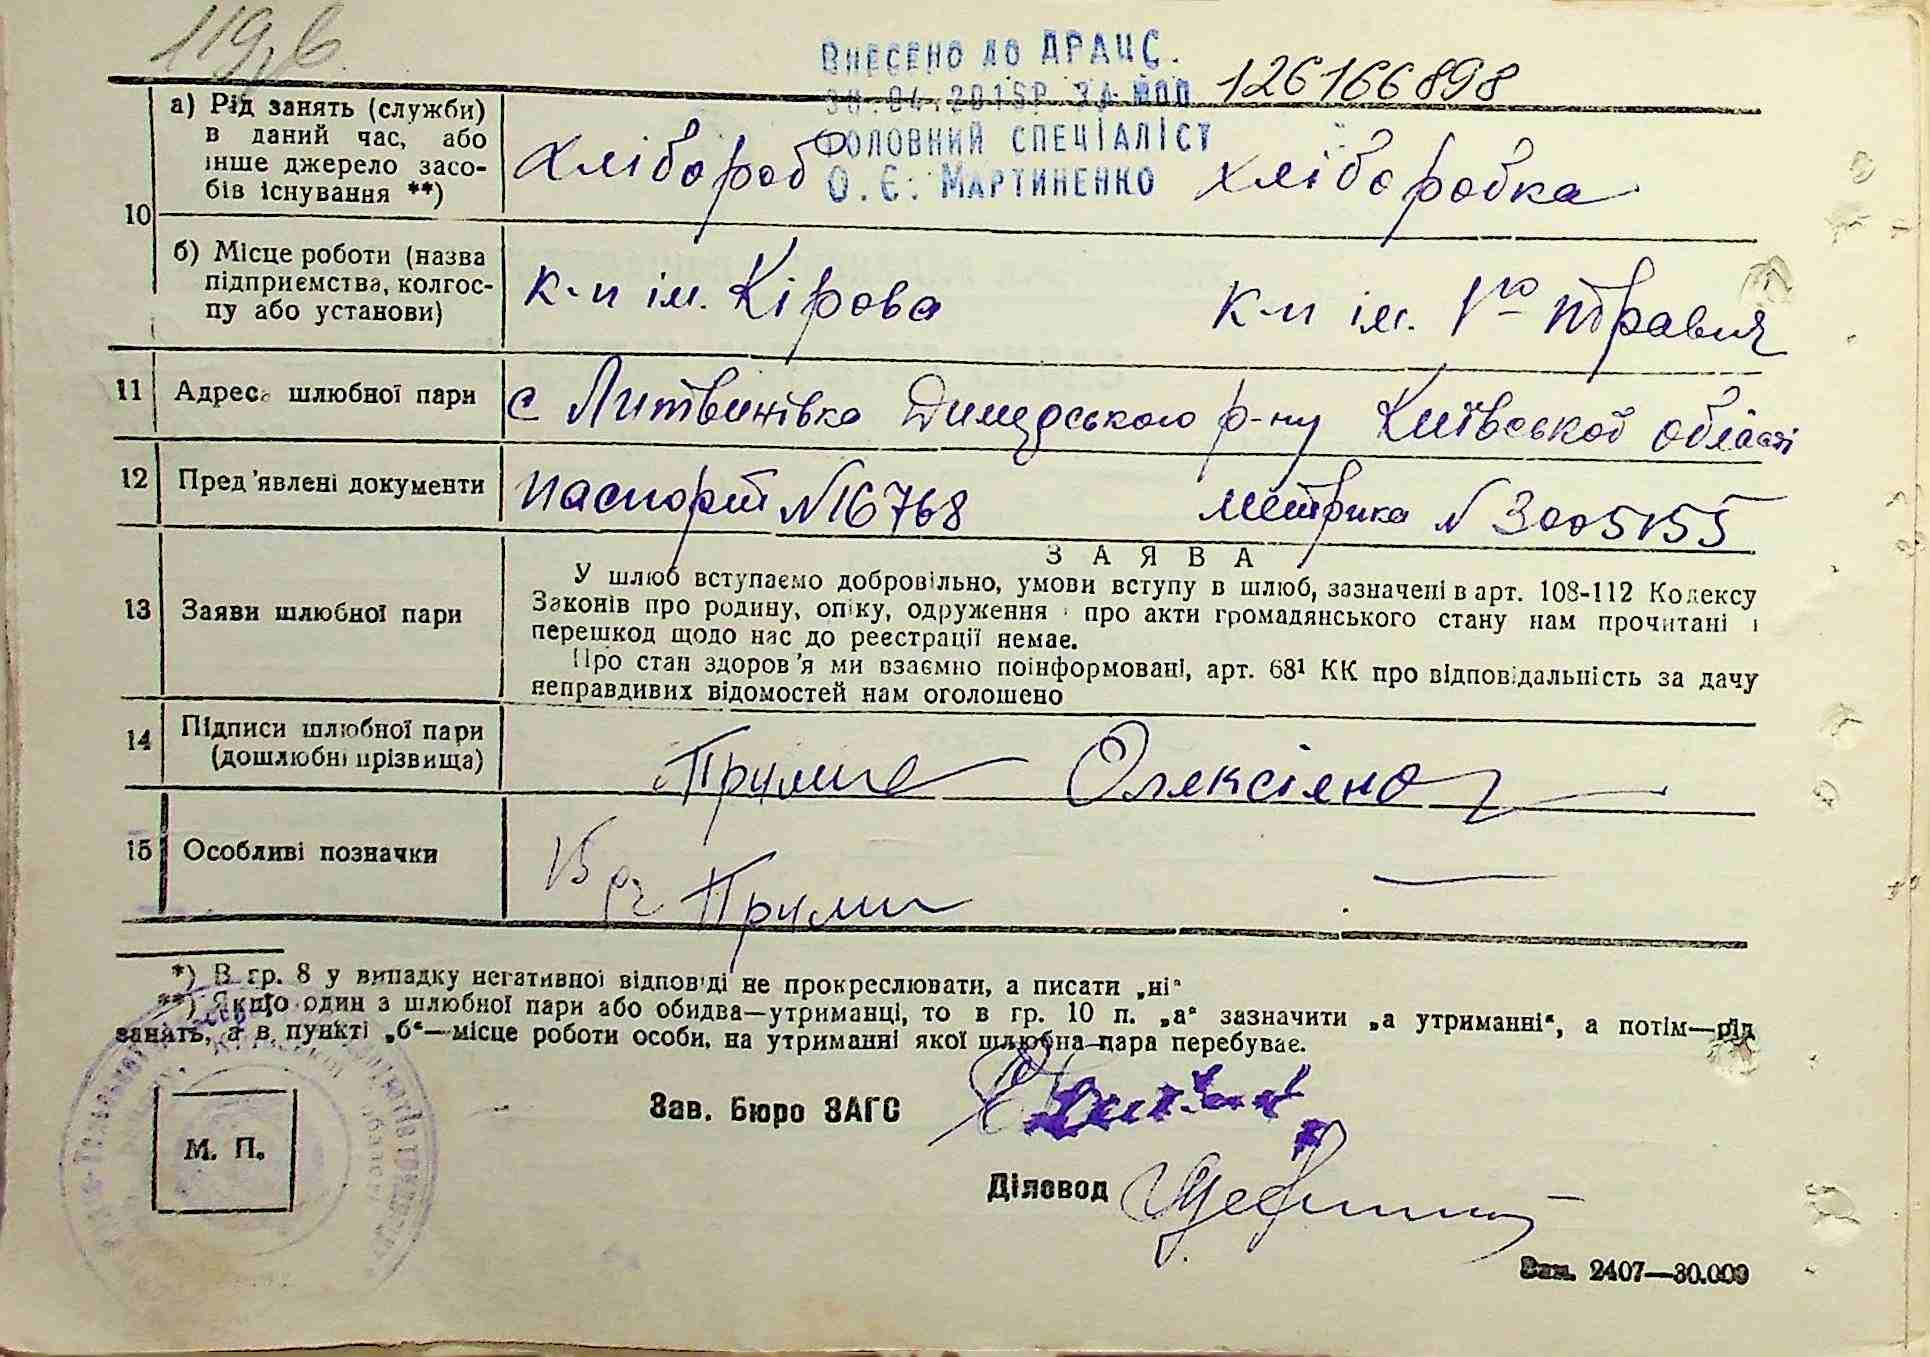 119
Внесено до ДРАЦС.
30.04.2015Р. ЗА №00 126166898
Головний спеціаліст
О.Є. Мартиненко
10
а) Рід занять (служби)
в даний час, або
інше джерело засо-
бів існування **)
хлібороб хліборобка
б) Місце роботи (назва
підприємства, колгос-
пу або установи)
к-п ім. Кірова к-п ім. 1го травня
11 Адреса шлюбної пари с Литвинівка Димерського р-ну Київської області
12 Пред'явлені документи паспорт №16768 метрика № 3005155
13 Заяви шлюбної пари
ЗАЯВА
У шлюб вступаємо добровільно, умови вступу в шлюб, зазначені в арт. 108-112 Кодексу
Законів про родину, опіку, одруження і про акти громадянського стану нам прочитані і
перешкод щодо нас до реєстрації немає.
Про стан здоров'я ми взаємно поінформовані, арт. 68¹ КК про відповідальність за дачу
неправдивих відомостей нам оголошено
14 Підписи шлюбної пари
(дошлюбні прізвища)
15 Особливі позначки
*) В гр. 8 у випадку негативної відповіді не прокреслювати, а писати „ні“
**) Якщо один з шлюбної пари або обидва—утриманці, то в гр. 10 п. „а“ зазначити „а утриманні“, а потім—рід
занять, а в пункті „б“—місце роботи особи, на утриманні якої шлюбна пара перебуває.
Зав. Бюро ЗАГС
М. П.
Діловод
Зам. 2407—30.000